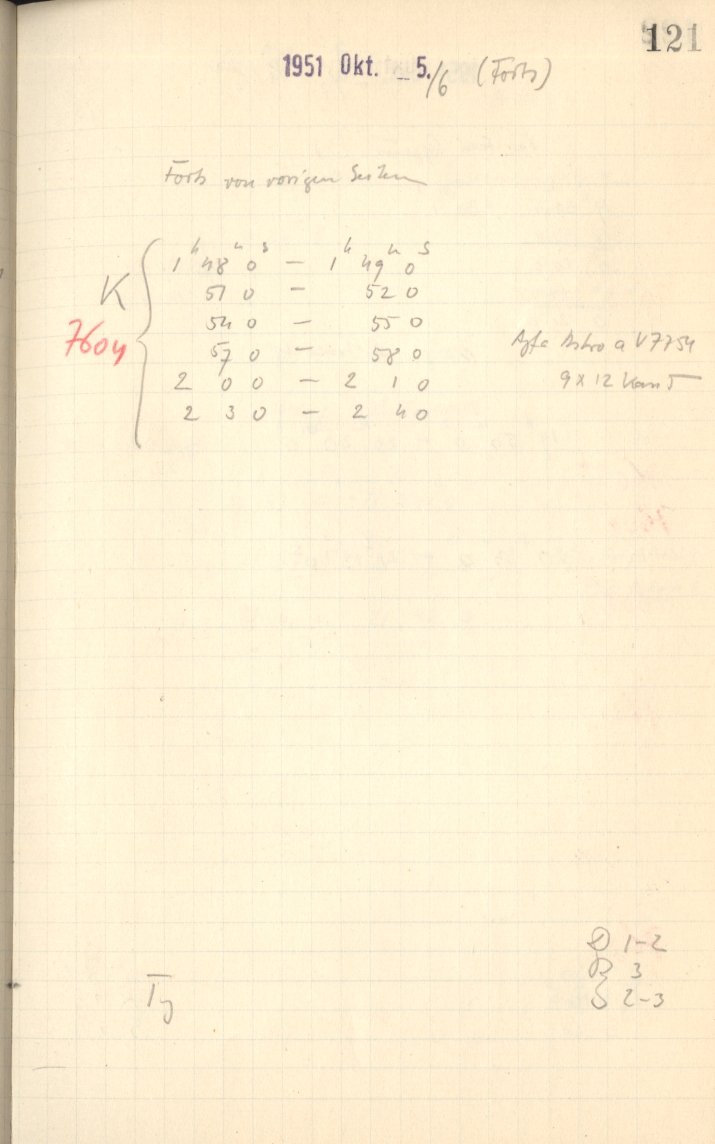 121
1951 Okt. 5./6 (Forts)
Forts von vorigen Seiten
1h 48m 0s — 1h 49m 0s
K 51 0 — 52 0
7604 54 0 — 55 0
57 0 — 58 0
Agfa Astro a V7754
2 0 0 — 2 1 0
9 x 12
2 3 0 — 2 4 0
D 1-2
R 3
S 2-3